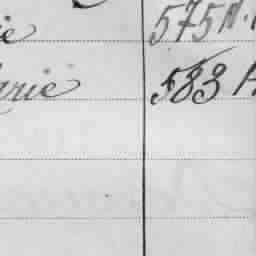 ie 575 N.
arie 583